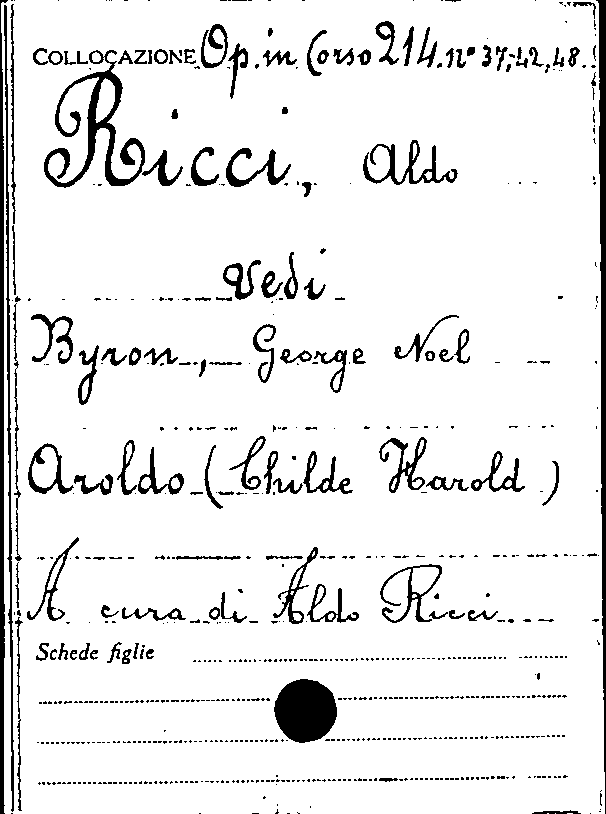 COLLOCAZIONE Op. in Corso 214. nº 37, 42, 48.
Ricci, Aldo
Vedi
Byron, George Noel
Aroldo (Childe Harold)
A cura di Aldo Ricci
Schede figlie